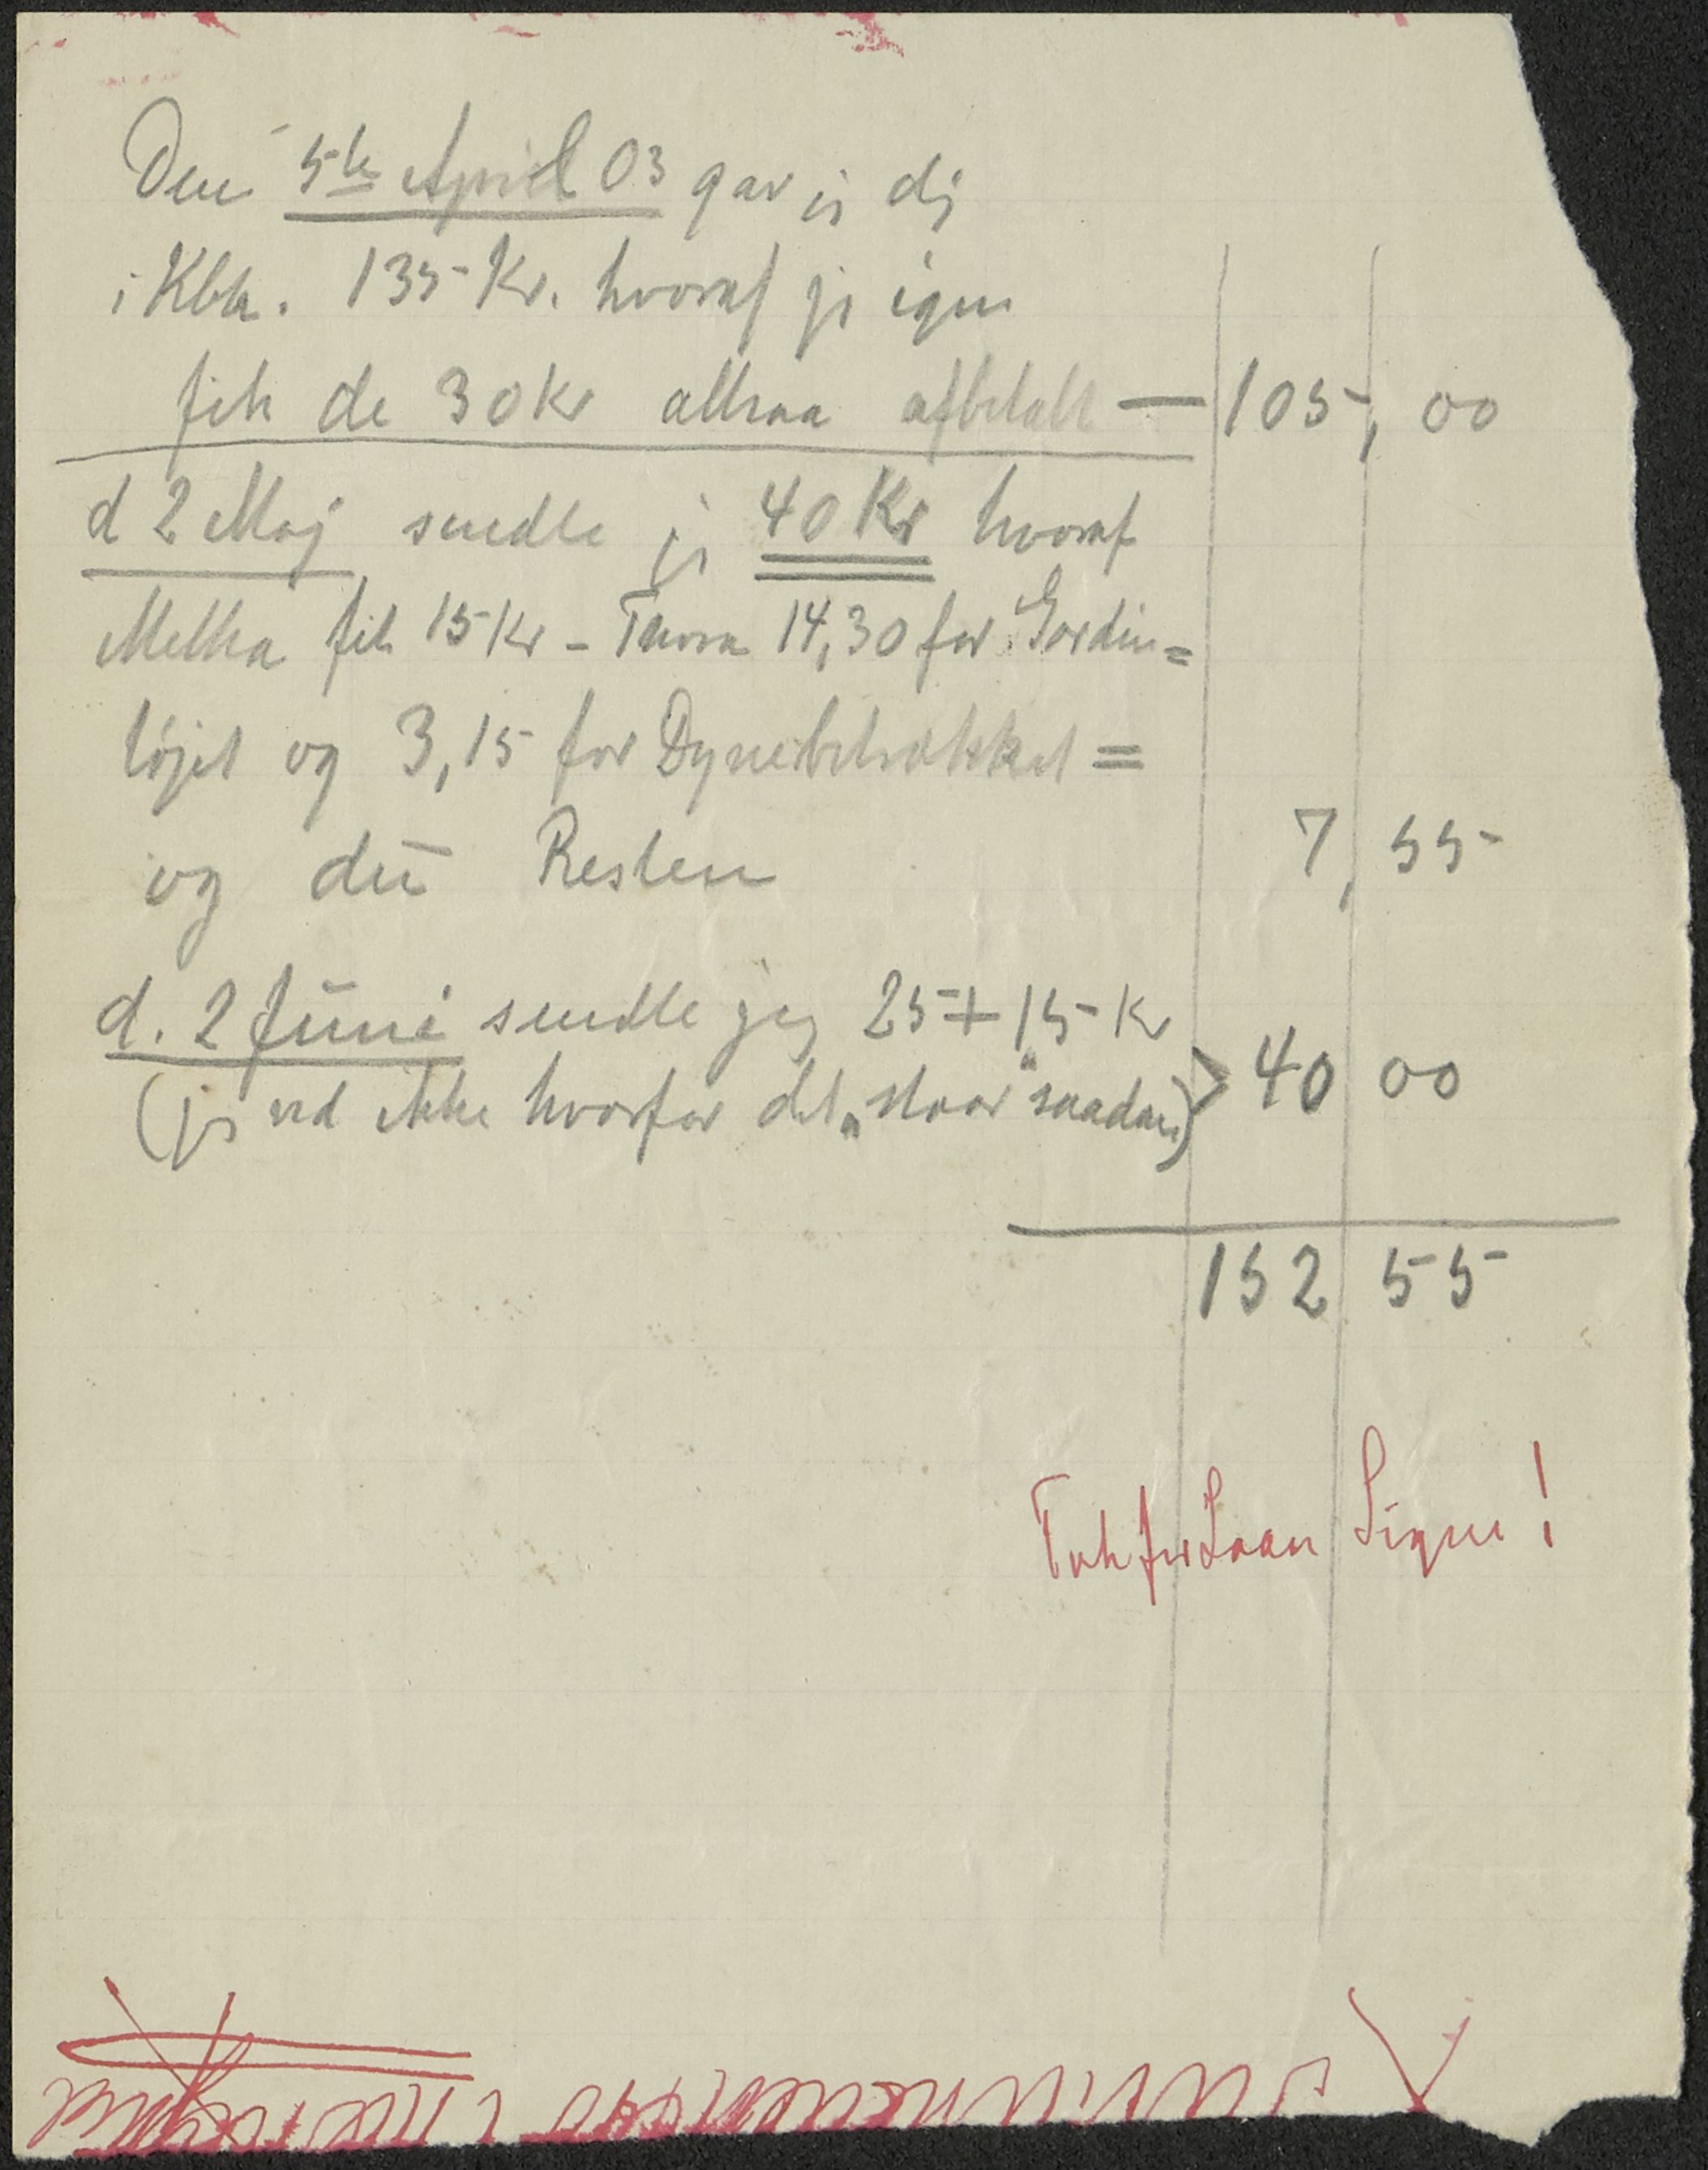 Den 5te April 03 gav jeg dig
i Kbh. 135 Kr. hvoraf jeg igen
fik de 30 Kr altsaa afbetalt — 105,00
d 2 Maj sendte jeg 40 Kr hvoraf
Melka fik 15 Kr - Thora 14,30 for Gardin=
tøjet og 3,15 for Dynebetrækket =
og du Resten 7,55
d. 2 Juni sendte jeg 25 + 15 Kr
(jeg ved ikke hvorfor det „staar" saadan) > 40 00
152 55
Tak for Laan Signe!